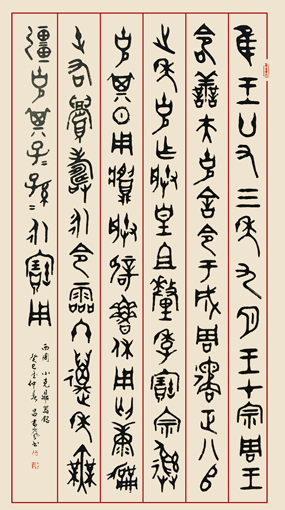 隹王廿又三年九月王才宗周王
令善夫克舍令于成周遹正八𠂤
之年克乍朕皇且釐季寶宗彝
克其日用𩰬朕辟魯休用匄康勵
屯右眉壽永令霝冬萬年無
彊克其子=孫=永寶用
西周 小克鼎